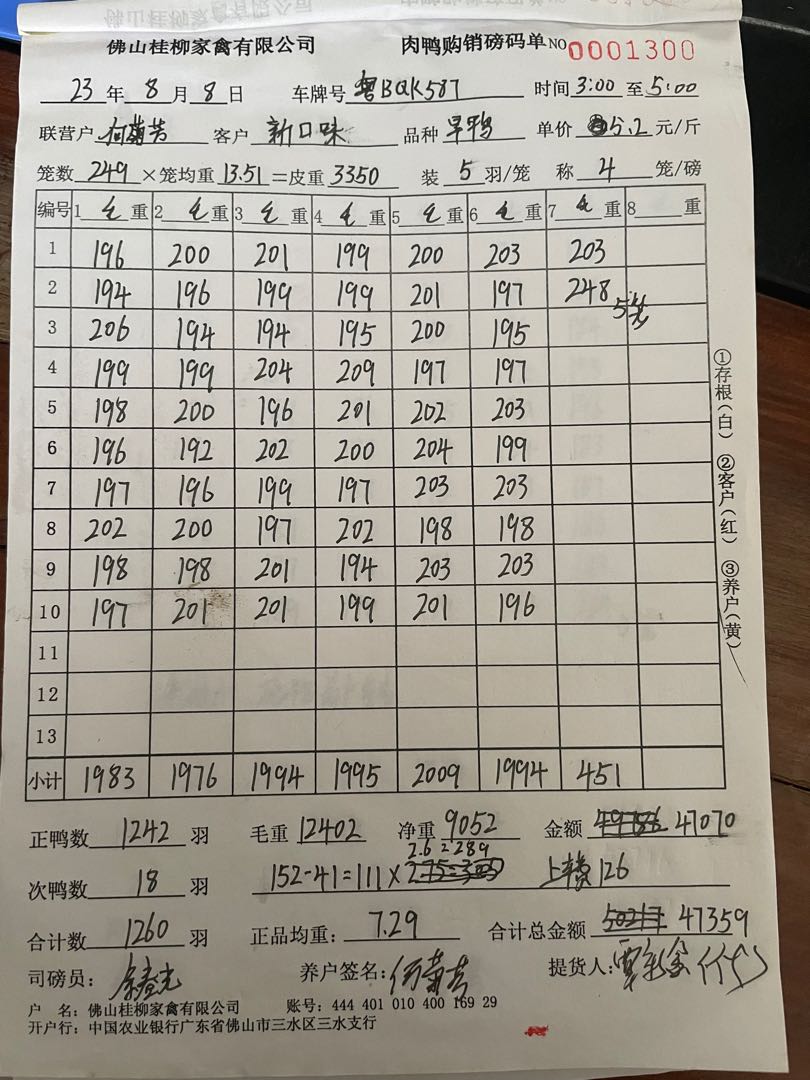 佛山桂柳家禽有限公司 肉鸭购销磅码单 NO 0001300
23 年 8 月 8 日 车牌号 粤BQK587 时间 3:00 至 5:00
联营户 何菊芳 客户 新口味 品种 旱鸭 单价 5.2 元/斤
笼数 249 ×笼均重 13.51 =皮重 3350 装 5 羽/笼 称 4 笼/磅
编号 1 毛 重 2 毛 重 3 毛 重 4 毛 重 5 毛 重 6 毛 重 7 毛 重 8 重
1 196 200 201 199 200 203 203
2 194 196 199 199 201 197 248 5笼
3 206 194 194 195 200 195
4 199 199 204 209 197 197
5 198 200 196 201 202 203
6 196 192 202 200 204 199
7 197 196 199 197 203 203
8 202 200 197 202 198 198
9 198 198 201 194 203 203
10 197 201 201 199 201 196
11
12
13
小计 1983 1976 1994 1995 2009 1994 451
①存根(白) ②客户(红) ③养户(黄)
正鸭数 1242 羽 毛重 12402 净重 9052 金额 47070
次鸭数 18 羽 152-41=111× 2.6=289 上车费 126
合计数 1260 羽 正品均重: 7.29 合计总金额 47359
司磅员: 养户签名: 何菊芳 提货人:
户 名: 佛山桂柳家禽有限公司 账号: 444 401 010 400 169 29
开户行: 中国农业银行广东省佛山市三水区三水支行